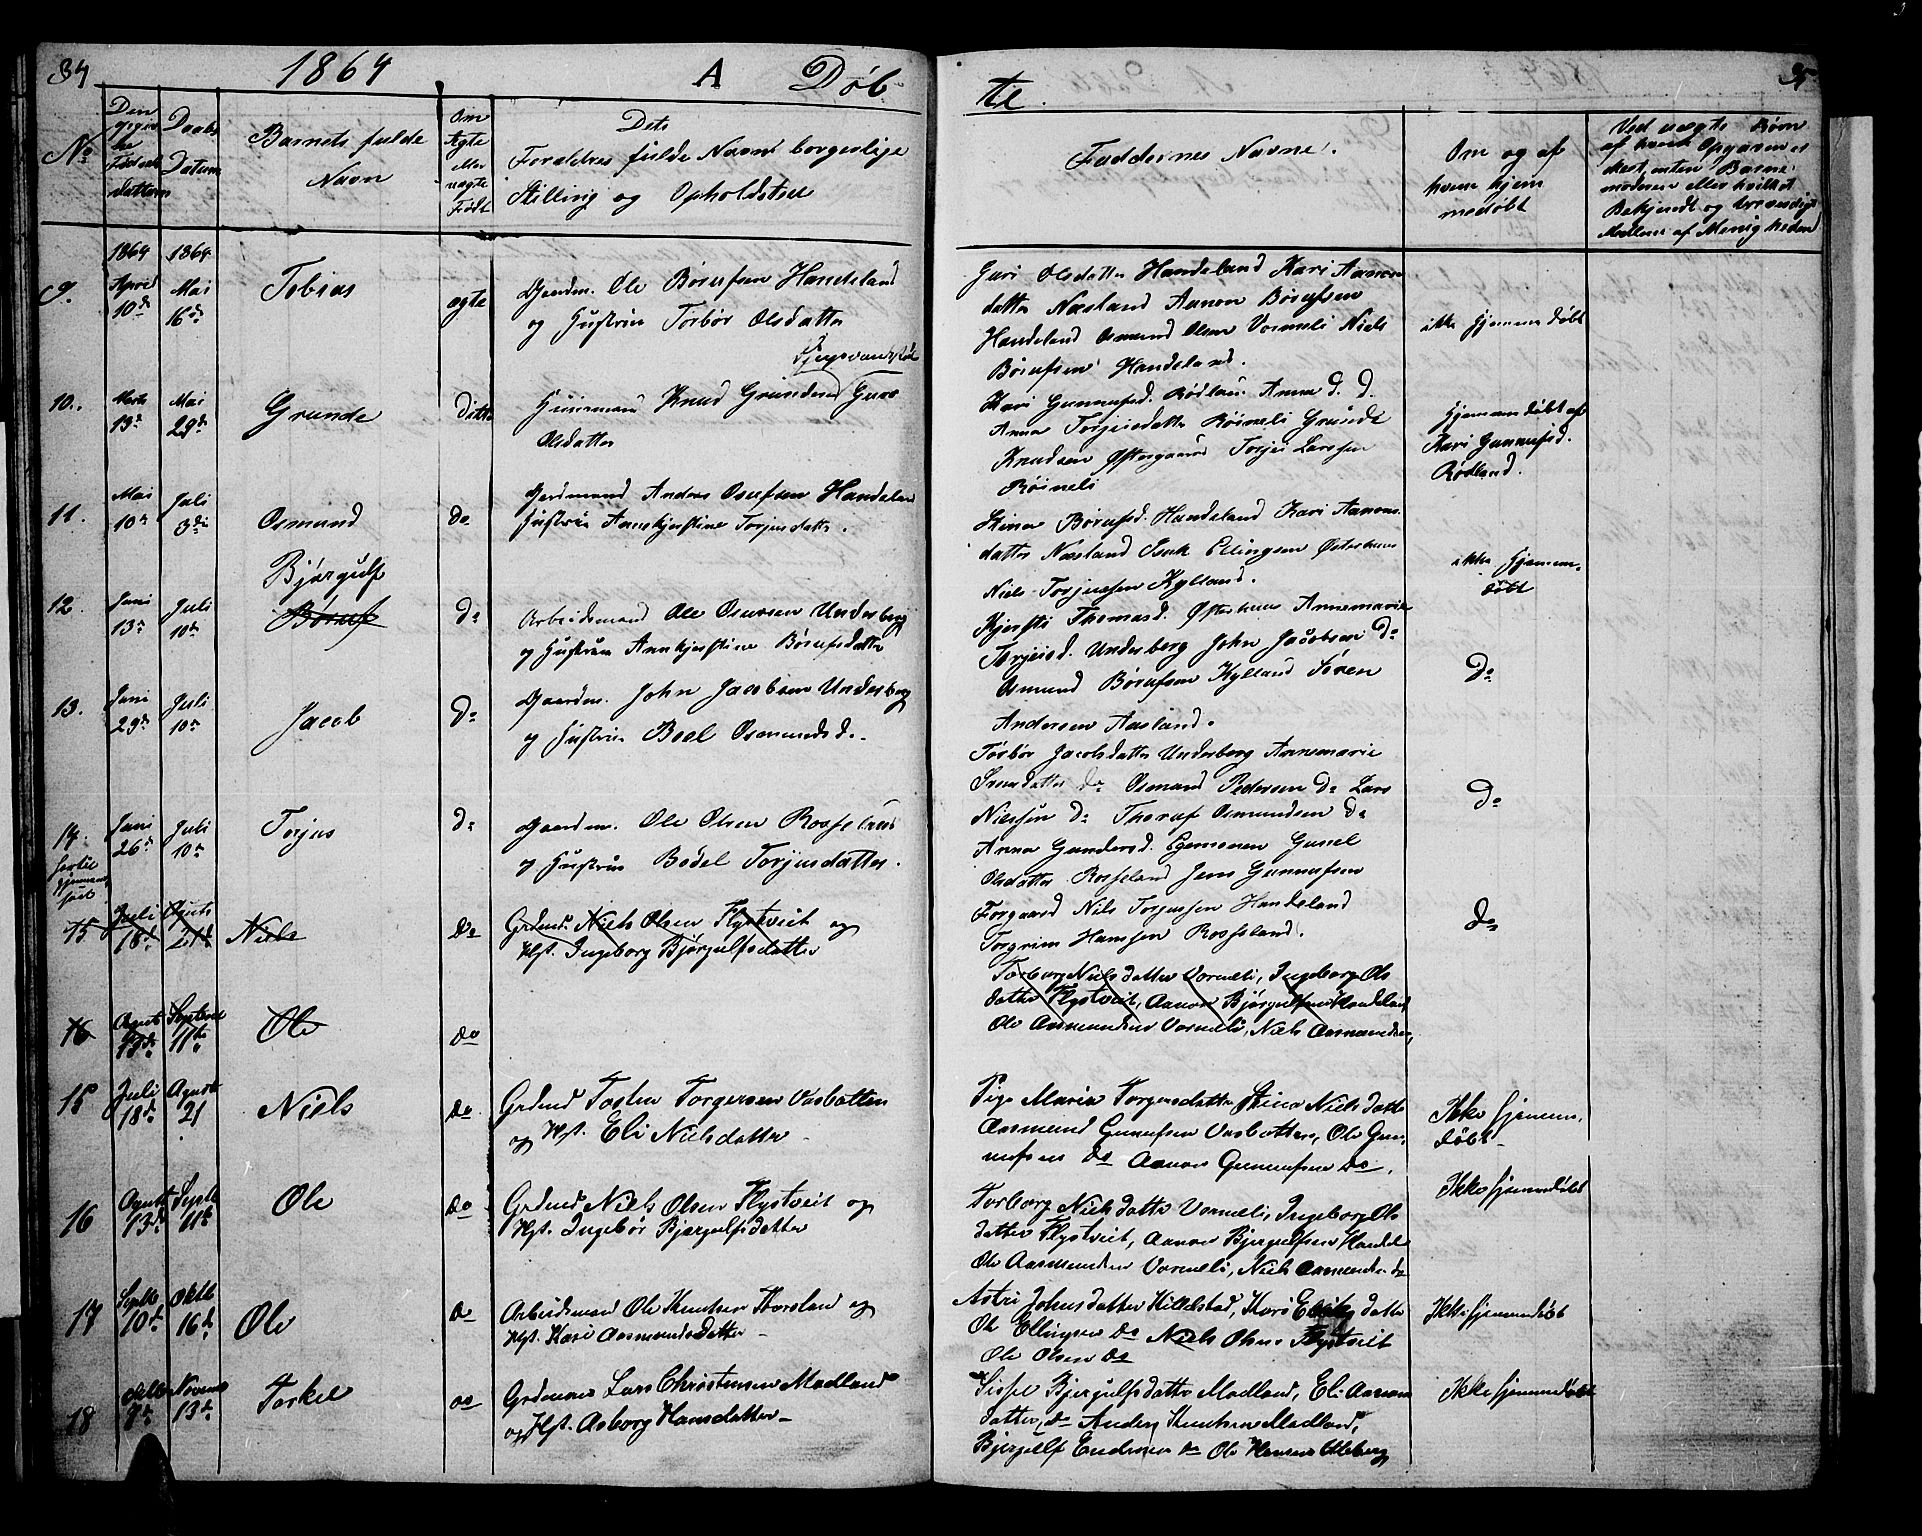 34
1864
A
Døb
te.
35
No
Den
opgiv
ne
Fødsels
datum
Daabs
Datum
Barnets fulde
Navn
Om
Ægte
eller
uægte
Født
Dets
Forældres fulde Navn borgerlige
Stilling og Opholdsted
Faddernes Navne.
Om og af
hvem hjem
medøbt
Ved uægte Børn
af hvem Opgaven er
skeet, enten Barne-
moderen eller hvilket
Bekjendt og troværdigt
Medlem af Menigheden
9.
1864
April
10de
1864
Mai
16de
Tobias
ægte
Gaardm. Ole Børufsen Handeland
og Hustrue Torbør Olsdatter
Guri Olsdatter Handeland Kari Aanon
datter Næsland Aanon Børufsen
Handeland Osmund Olsen Vormeli Niels
Børufsen Handeland.
ikke hjemmedøbt
10.
Marts
13de
Mai
29de
Grunde
ditto
Huusmand Knud Grundesen Guro
Olsdatter
Kari Gunnufsd. Rødland Anna d. d.
Anna Torgeisdatter Røineli Grunde
Knudsen Østergaard Torjei Larssen
Røineli
Hjemmedøbt af
Kari Gunnufsd.
Rødland.
11.
Mai
10de
Juli
3de
Osmund
do
Gardmand Anders Osufsen Handeland
Hustrue Annekjerstine Torjusdatter.
Stina Børufsd. Handeland Kari Aanons
datter Næsland Isak Ellingsen Østerhuus
Niels Torjussen Kylland.
ikke hjemme-
døbt
12.
Juni
13de
Juli
10de
Bjørgulf
Børuf
do
Arbeidsmand Ole Osursen Underberg
og Hustrue Annkjerstine Børufsdatter
Kjersti Thomasd. Østerhuus Annemarie
Torjeisd. Underberg John Jacobsen do
Osmund Børufsen Kylland Søren
Andersen Aasland.
do
13.
Juni
29de
Juli
10de
Jacob
do
Gaardm. John Jacobsen Underberg
og Hustrue Boel Osmundsd.
Torbør Jacobsdatter Underberg Annemarie
datter do Osmand Pedersen do Lars
Nielssen do Thoruf Osmundsen do
do
14.
Juni
26de
Juli
10de
Torjus
do
Gaardm. Ole Olsen Rosseland
og Hustrue Bodel Torjusdatter.
Anna Gundersd. Egemonen Gunel
Olsdatter Rosseland Jens Gunnufsen
Forgaard Nils Torjussen Handeland
Torgrim Hanssen Rosseland.
do
15
Juli
18de
Agusts
21de
Niels
do
Grdmd. Niels Olsen Flystveit og
Hst. Ingeborg Bjørgulfsdatter
Torborg Nielsdatter Vormeli, Ingeborg Ols
datter Flystveit, Aanon Bjørgulfsen Handeland,
Ole Aasmundsen Vormeli, Niels Aasmundsen,
16
Agusts
13de
Septembr
11te
Ole
do
15
Juli
18de
Agusts
21
Niels
do
Grdmd Tosten Torgersen Vasbotten
og Hst. Eli Nielsdatter
Pige Maria Torgersdatter Stina Nielsdatter
Aasmund Gunufsen Vasbotten, Ole Gun-
nufsen do Aanon Gunnufsen do.
Ikke hjemme-
døbt
16
Agusts
13de
Septb
11te
Ole
do
Grdmd Niels Olsen Flystveit og
Hst. Ingebør Bjørgulfsdatter
Torborg Nielsdatter Vormeli, Ingeborg Ols
datter Flystveit, Aanon Bjørgulfsen Handel
Ole Aasmundsen Vormeli, Niels Aasmundsen do
Ikke hjemmedøbt
17
Septb
10de
Oktb
16de
Ole
do
Arbeidsmand Ole Knutsen og
Hst. Kari Aasmundsdatter
Astri Johnsdatter Hillestad, datter
Ole Ellingsen do Niels Olsen Flystveit
Ole Olsen do
Ikke hjemmedøbt
18
Oktb
Novem
13de
Torkel
do
Grdmand Lars Christensen Madland
og Hst. Asborg Hansdatter
Sissel Bjørgulfsdatter Madland, Eli Aanon
datter, do Anders Knutsen Madland,
Bjørgulf Endresen do Ole Hansen
Ikke hjemmedøbt